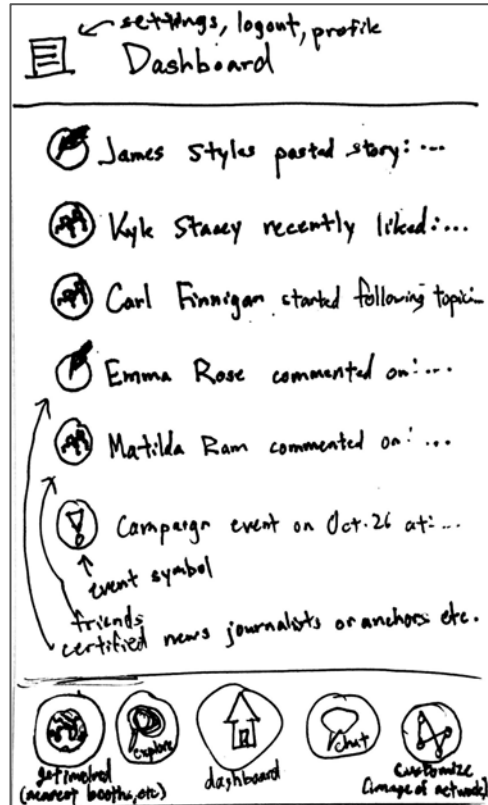 settings, logout, profile
Dashboard
James Styles posted story: ...
Kyle Stacey recently liked: ...
Carl Finnigan started following topic: ...
Emma Rose commented on: ...
Matilda Ram commented on: ...
Campaign event on Oct. 26 at: ...
event symbol
friends
certified news journalists or anchors etc.
explore
chat
get involved
(nearest booths, etc)
dashboard
customize
(image of network)